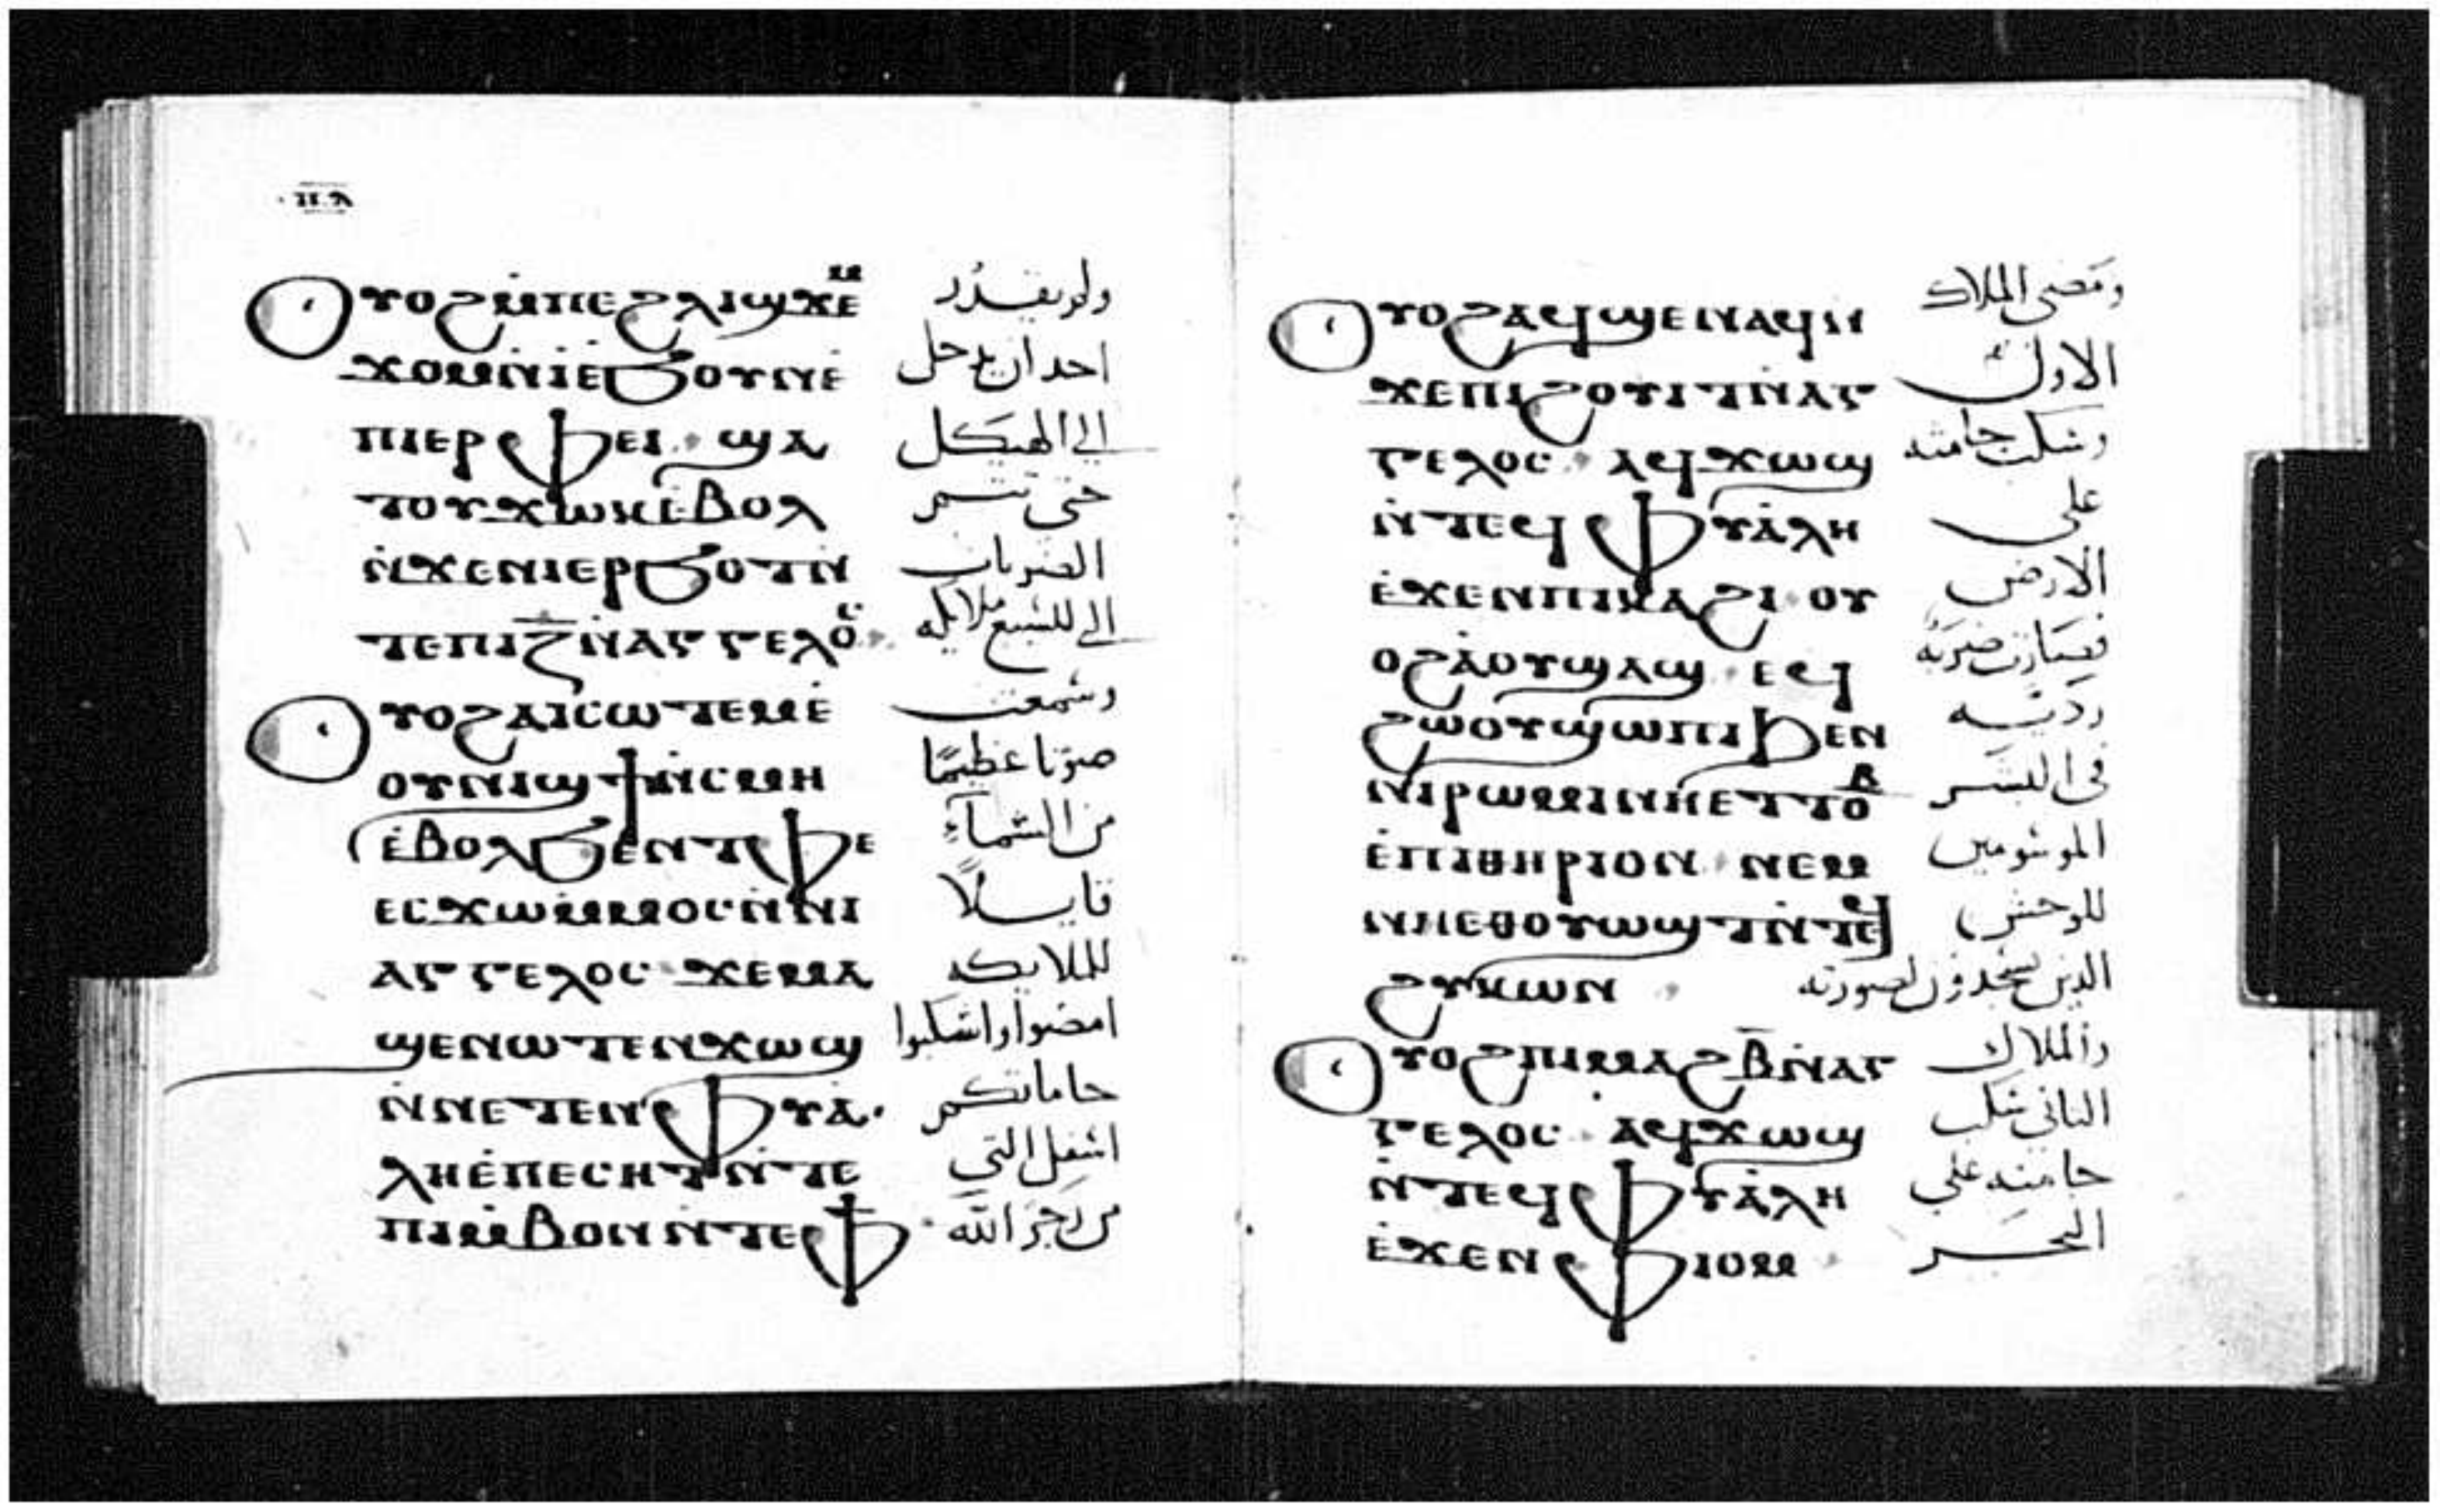 ⲡⲗ
ⲟⲩⲟϩ ⲙ̇ⲡⲉϩⲗⲓ ϣϫⲉⲙ
ϫⲟⲙ ⲛ̇ⲓ̇ ⲉ̇ϧⲟⲩⲛ ⲉ̇ ولم يقدر
ⲡⲓⲉⲣⲫⲉⲓ · ϣⲁ احد ان يدخل
ⲧⲟⲩϫⲱⲕ ⲉ̇ⲃⲟⲗ الي الهيكل
ⲛ̇ϫⲉⲛⲓⲉⲣϧⲟⲧ ⲛ̇ حتى تتم
ⲧⲉⲡⲓⲍ̅ ⲛ̇ⲁⲅⲅⲉⲗⲟⲥ · الضربات
ⲟⲩⲟϩ ⲁⲓⲥⲱⲧⲉⲙ ⲉ̇ وسمعت
ⲟⲩⲛⲓϣϯ ⲛ̇ⲥⲙⲏ صوتا عظيمًا
ⲉ̇ⲃⲟⲗϧⲉⲛ ⲧⲫⲉ من السماء
ⲉⲥϫⲱ ⲙ̇ⲙⲟⲥ ⲛ̇ⲛⲓ قايلاً
ⲁⲅⲅⲉⲗⲟⲥ · ϫⲉⲙⲁ للملايكه
ϣⲉⲛⲱⲧⲉⲛ ϫⲱϣ امضوا واسكبوا
ⲛ̇ⲛⲉⲧⲉⲛⲫⲩⲁ̇ جاماتكم
ⲗⲏ ⲉ̇ⲡⲉⲥⲏⲧ ⲛ̇ⲧⲉ اسفل التي
ⲡⲓⲙ̇ⲃⲟⲛ ⲛ̇ⲧⲉⲫϯ · من رجز الله
ⲟⲩⲟϩ ⲁϥϣⲉⲛⲁϥ ⲛ̇ ومضى الملاك
ϫⲉⲡⲓϩⲟⲩⲓⲧ ⲛ̇ⲁⲅ الاول
ⲅⲉⲗⲟⲥ · ⲁϥϫⲱϣ وسكب جامته
ⲛ̇ⲧⲉϥⲫⲩⲁ̇ⲗⲏ على
ⲉ̇ϫⲉⲛ ⲡⲓⲕⲁϩⲓ · ⲟⲩ الارض
ⲟϩ ⲁ̇ⲟⲩϣⲁϣ · ⲉϥ فصارت ضربه
ϩⲱⲟⲩ ϣⲱⲡⲓ ϧⲉⲛ رديه
ⲛⲓⲣⲱⲙⲓ ⲛⲏⲉⲧⲧⲟⲃ في البشر
ⲉ̇ⲡⲓⲑⲏⲣⲓⲟⲛ · ⲛⲉⲙ الموسومين
ⲛⲏⲉⲑⲟⲩⲱϣⲧ ⲛ̇ⲧⲉϥ للوحش
ϩⲩⲕⲱⲛ · الذين يسجدون لصورته
ⲟⲩⲟϩ ⲡⲓⲙⲁϩⲃ̅ ⲛ̇ⲁⲅ والملاك
ⲅⲉⲗⲟⲥ · ⲁϥϫⲱϣ الثاني سكب
ⲛ̇ⲧⲉϥⲫⲩⲁ̇ⲗⲏ جامته علي
ⲉ̇ϫⲉⲛ ⲫⲓⲟⲙ · البحر